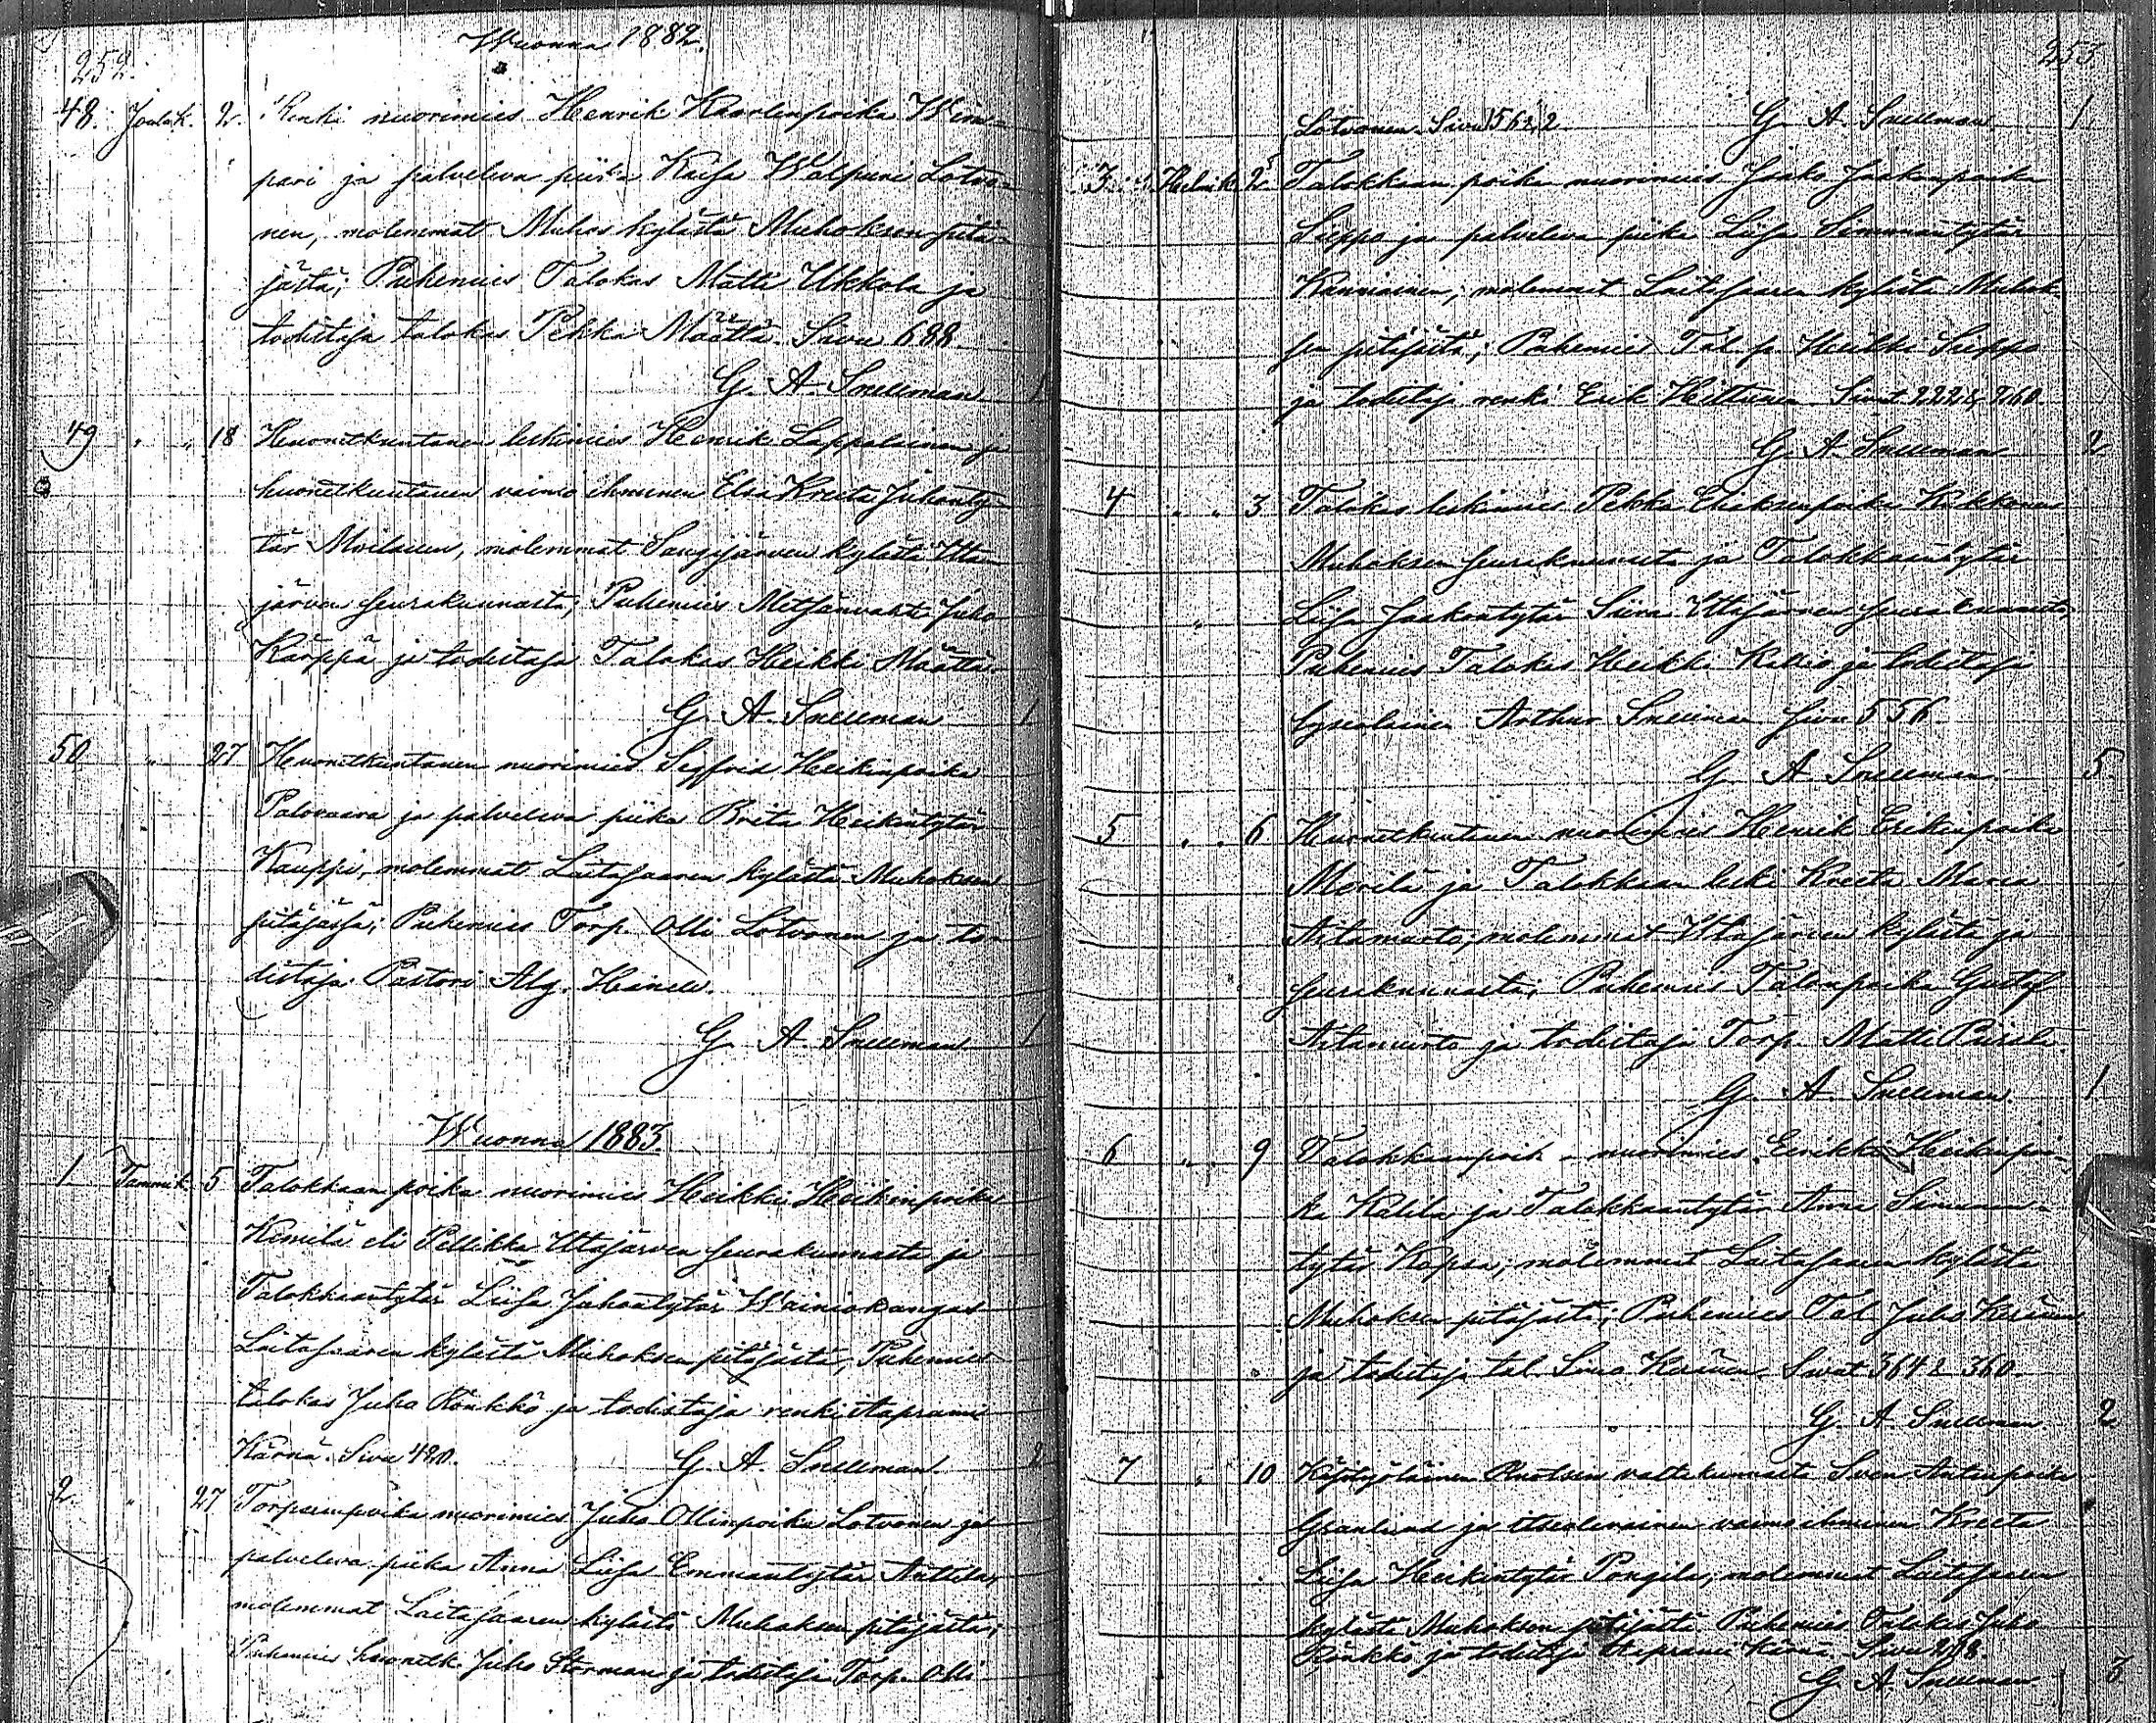 252.
Wuonna 1882.
48. Jouluk. 2. Renki nuorimies Henrik Kaarlenpoika Wim-
pari ja palveleva piika Kaisa Walpuri Lotvo-
nen, molemmat Muhos kylästä Muhoksen pitä-
jästä; Puhemies Talokas Matti Ukkola ja
todistaja talokas Pekka Määttä. Sivu 688.
G. A. Snellman 1
49 " " 18 Huonetkuntanen leskimies Henrik Lappalainen ja
huonetkuntanen vaimo ihminen Elsa Kreeta Juhonty-
tär Moilanen, molemmat Sangijärven kylästä Uta-
järven seurakunnasta; Puhemies Metsänvahti Juho
Kärppä ja todistaja Talokas Heikki Määttä.
G. A. Snellman 1
50 " 27 Huonetkuntanen nuorimies Sigfrid Heikinpoika
Palovaara ja palveleva piika Brita Heikintytär
Kauppi, molemmat Laitasaaren kylästä Muhoksen
pitäjässä; Puhemies Torp. Olli Lotvonen ja to-
distaja Pastori Alg.
G. A. Snellman 1
Wuonna 1883.
1 Tammik. 5 Talokkaan poika nuorimies Heikki Heikinpoika
Kemilä eli Pellikka Utajärven seurakunnasta ja
Talokkaantytär Liisa Juhontytär Wainiokangas
Laitasaaren kylästä Muhoksen pitäjästä; Puhemies
talokas Juho Rönkkö ja todistaja renki Aaprami
Kärnä. Sivu 420. G. A. Snellman. 2
2 " 27 Torparinpoika nuorimies Juho Ollinpoika Lotvonen ja
palveleva piika Anna Liisa Emmantytär Anttila,
molemmat Laitasaaren kylästä Muhoksen pitäjästä;
Puhemies huonetk. Juho Storman ja todistaja Torp. Olli
253
Lotvonen. Sivu G. A. Snellman 1
3. Helmik. 2 Talokkaan poika nuorimies Jaako Jaakonpoika
Seppo ja palveleva piika Liisa Simmuntytär
molemmat Laitasaaren kylästä Muhok-
sen pitäjästä; Puhemies Tal. p. Heikki Seppo
ja todistaja renki Erik Hiltunen Sivut 222 & 760.
G. A. Snellman 2
4 " " 3 Talokas leskimies Pekka Eliaksenpoika Kukkonen
Muhoksen seurakunnasta ja Talokkaantytär
Liisa Jaakontytär Utajärven seurakunnasta,
Puhemies Talokas Heikki Kallio ja todistaja
lyseolainen Arthur Snellman Sivu 556.
G. A. Snellman. 5.
5 " " 6 Huonetkuntanen nuorimies Henrik Erikinpoika
Merilä ja Talokkaan leski Kreeta Maria
Ahtamurto; molemmat Utajärven kylästä ja
seurakunnasta; Puhemies Talonpoika Gustaf
Ahtamurto ja todistaja Torp. Matti
G. A. Snellman 1
6 " " 9 Talokkaanpoik. nuorimies Eerikki Heikinpoi-
ka Kalila ja Talokkaantytär Anna Simunan-
tytär Kopsa; molemmat Laitasaaren kylästä
Muhoksen pitäjästä; Puhemies Tal. Juho Keränen
ja todistaja tal. Simo Keränen. Sivut 364 & 360.
G. A. Snellman 2
7 " 10 Käsityöläinen Ruotsin valtakunnasta Sven Antinpoika
Granlund ja itsellinen vaimo ihminen Kreeta
Liisa Heikintytär Pongila, molemmat Laitasaaren
kylästä Muhoksen pitäjästä Puhemies Talokas Juho
Rönkkö ja todistaja Aaprami Kärnä. Sivu 268.
G. A. Snellman 3